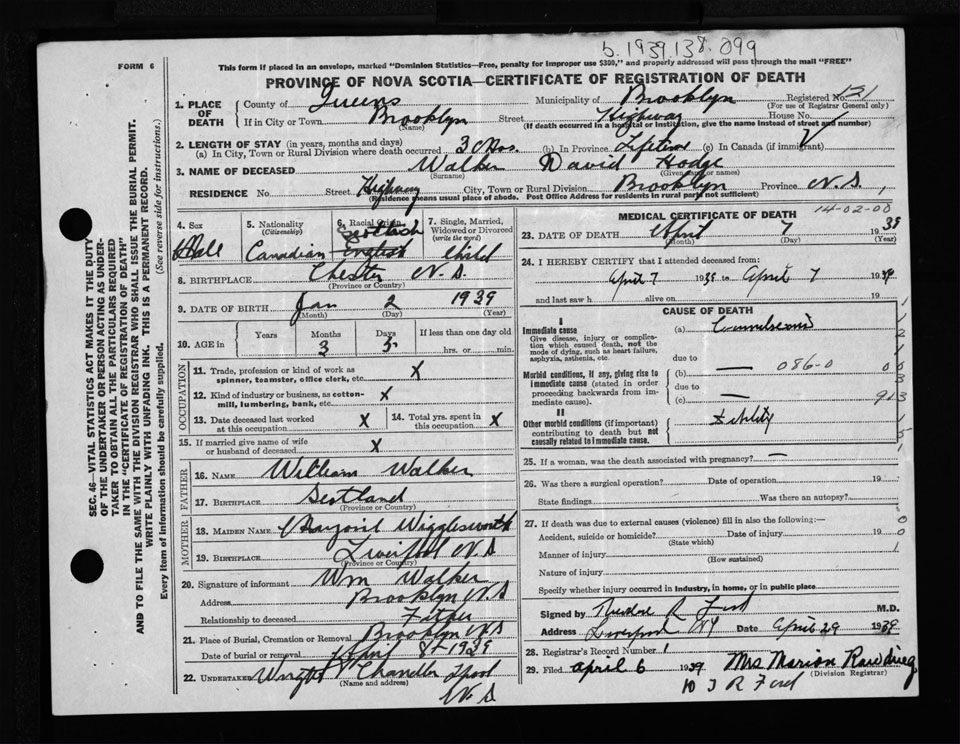 b. 1939.138.099
FORM 6
This form if placed in an envelope, marked "Dominion Statistics—Free, penalty for improper use $300," and properly addressed will pass through the mail "FREE"
PROVINCE OF NOVA SCOTIA—CERTIFICATE OF REGISTRATION OF DEATH
SEC. 46—VITAL STATISTICS ACT MAKES IT THE DUTY
OF THE UNDERTAKER OR PERSON ACTING AS UNDER-
TAKER TO OBTAIN ALL THE PARTICULARS REQUIRED
IN THE "CERTIFICATE OF REGISTRATION OF DEATH"
AND TO FILE THE SAME WITH THE DIVISION REGISTRAR WHO SHALL ISSUE THE BURIAL PERMIT.
WRITE PLAINLY WITH UNFADING INK. THIS IS A PERMANENT RECORD.
Every item of information should be carefully supplied. (See reverse side for instructions).
1. PLACE OF DEATH
County of Queens Municipality of Brooklyn Registered No. 131
(For use of Registrar General only)
If in City or Town Brooklyn Street Highway House No.
(Name) (If death occurred in a hospital or institution, give the name instead of street and number)
2. LENGTH OF STAY (in years, months and days)
(a) In City, Town or Rural Division where death occurred 3 Mos. (b) In Province Lifetime (c) In Canada (if immigrant)
3. NAME OF DECEASED Walker David Hodge
(Surname) (Given name or names)
RESIDENCE No. Street Highway City, Town or Rural Division Brooklyn Province N.S.
(Residence means usual place of abode. Post Office Address for residents in rural parts not sufficient)
4. Sex Male
5. Nationality (Citizenship) Canadian
6. Racial Origin Scottish English
7. Single, Married, Widowed or Divorced (write the word) Child
8. BIRTHPLACE Chester N.S.
(Province or Country)
9. DATE OF BIRTH Jan 2 1939
(Month) (Day) (Year)
10. AGE in Years Months 3 Days 5 If less than one day old
hrs. or min.
OCCUPATION
11. Trade, profession or kind of work as spinner, teamster, office clerk, etc. X
12. Kind of industry or business, as cotton-mill, lumbering, bank, etc. X
13. Date deceased last worked at this occupation X
14. Total yrs. spent in this occupation X
15. If married give name of wife or husband of deceased X
FATHER
16. NAME William Walker
17. BIRTHPLACE Scotland
(Province or Country)
MOTHER
18. MAIDEN NAME Marjorie Wigglesworth
19. BIRTHPLACE Liverpool N.S
(Province or Country)
20. Signature of informant Wm Walker
Address Brooklyn N.S
Relationship to deceased Father
21. Place of Burial, Cremation or Removal Brooklyn N.S
Date of burial or removal 8 - 1939
22. UNDERTAKER Wright Chandler L'pool
(Name and address) N.S
MEDICAL CERTIFICATE OF DEATH
14-02-00
23. DATE OF DEATH April 7 1939
(Month) (Day) (Year)
24. I HEREBY CERTIFY that I attended deceased from:
April 7 1939 to April 7 1939
and last saw h alive on 19
CAUSE OF DEATH
I
Immediate cause (a) Convulsions
Give disease, injury or complication which caused death, not the mode of dying, such as heart failure, asphyxia, asthenia, etc.
due to
Morbid conditions, if any, giving rise to immediate cause (stated in order proceeding backwards from immediate cause). (b) — 086-0
due to
(c) —
II
Other morbid conditions (if important) contributing to death but not causally related to immediate cause. Debility
25. If a woman, was the death associated with pregnancy? —
26. Was there a surgical operation? Date of operation 19
State findings Was there an autopsy?
27. If death was due to external causes (violence) fill in also the following:—
Accident, suicide or homicide? Date of injury 19
(State which)
Manner of injury
(How sustained)
Nature of injury
Specify whether injury occurred in industry, in home, or in public place
Signed by Theodore R Ford M.D.
Address Liverpool NS Date April 29 1939
28. Registrar's Record Number 1
29. Filed April 6 1939 Mrs Marion Rawding
(Division Registrar)
T R Ford